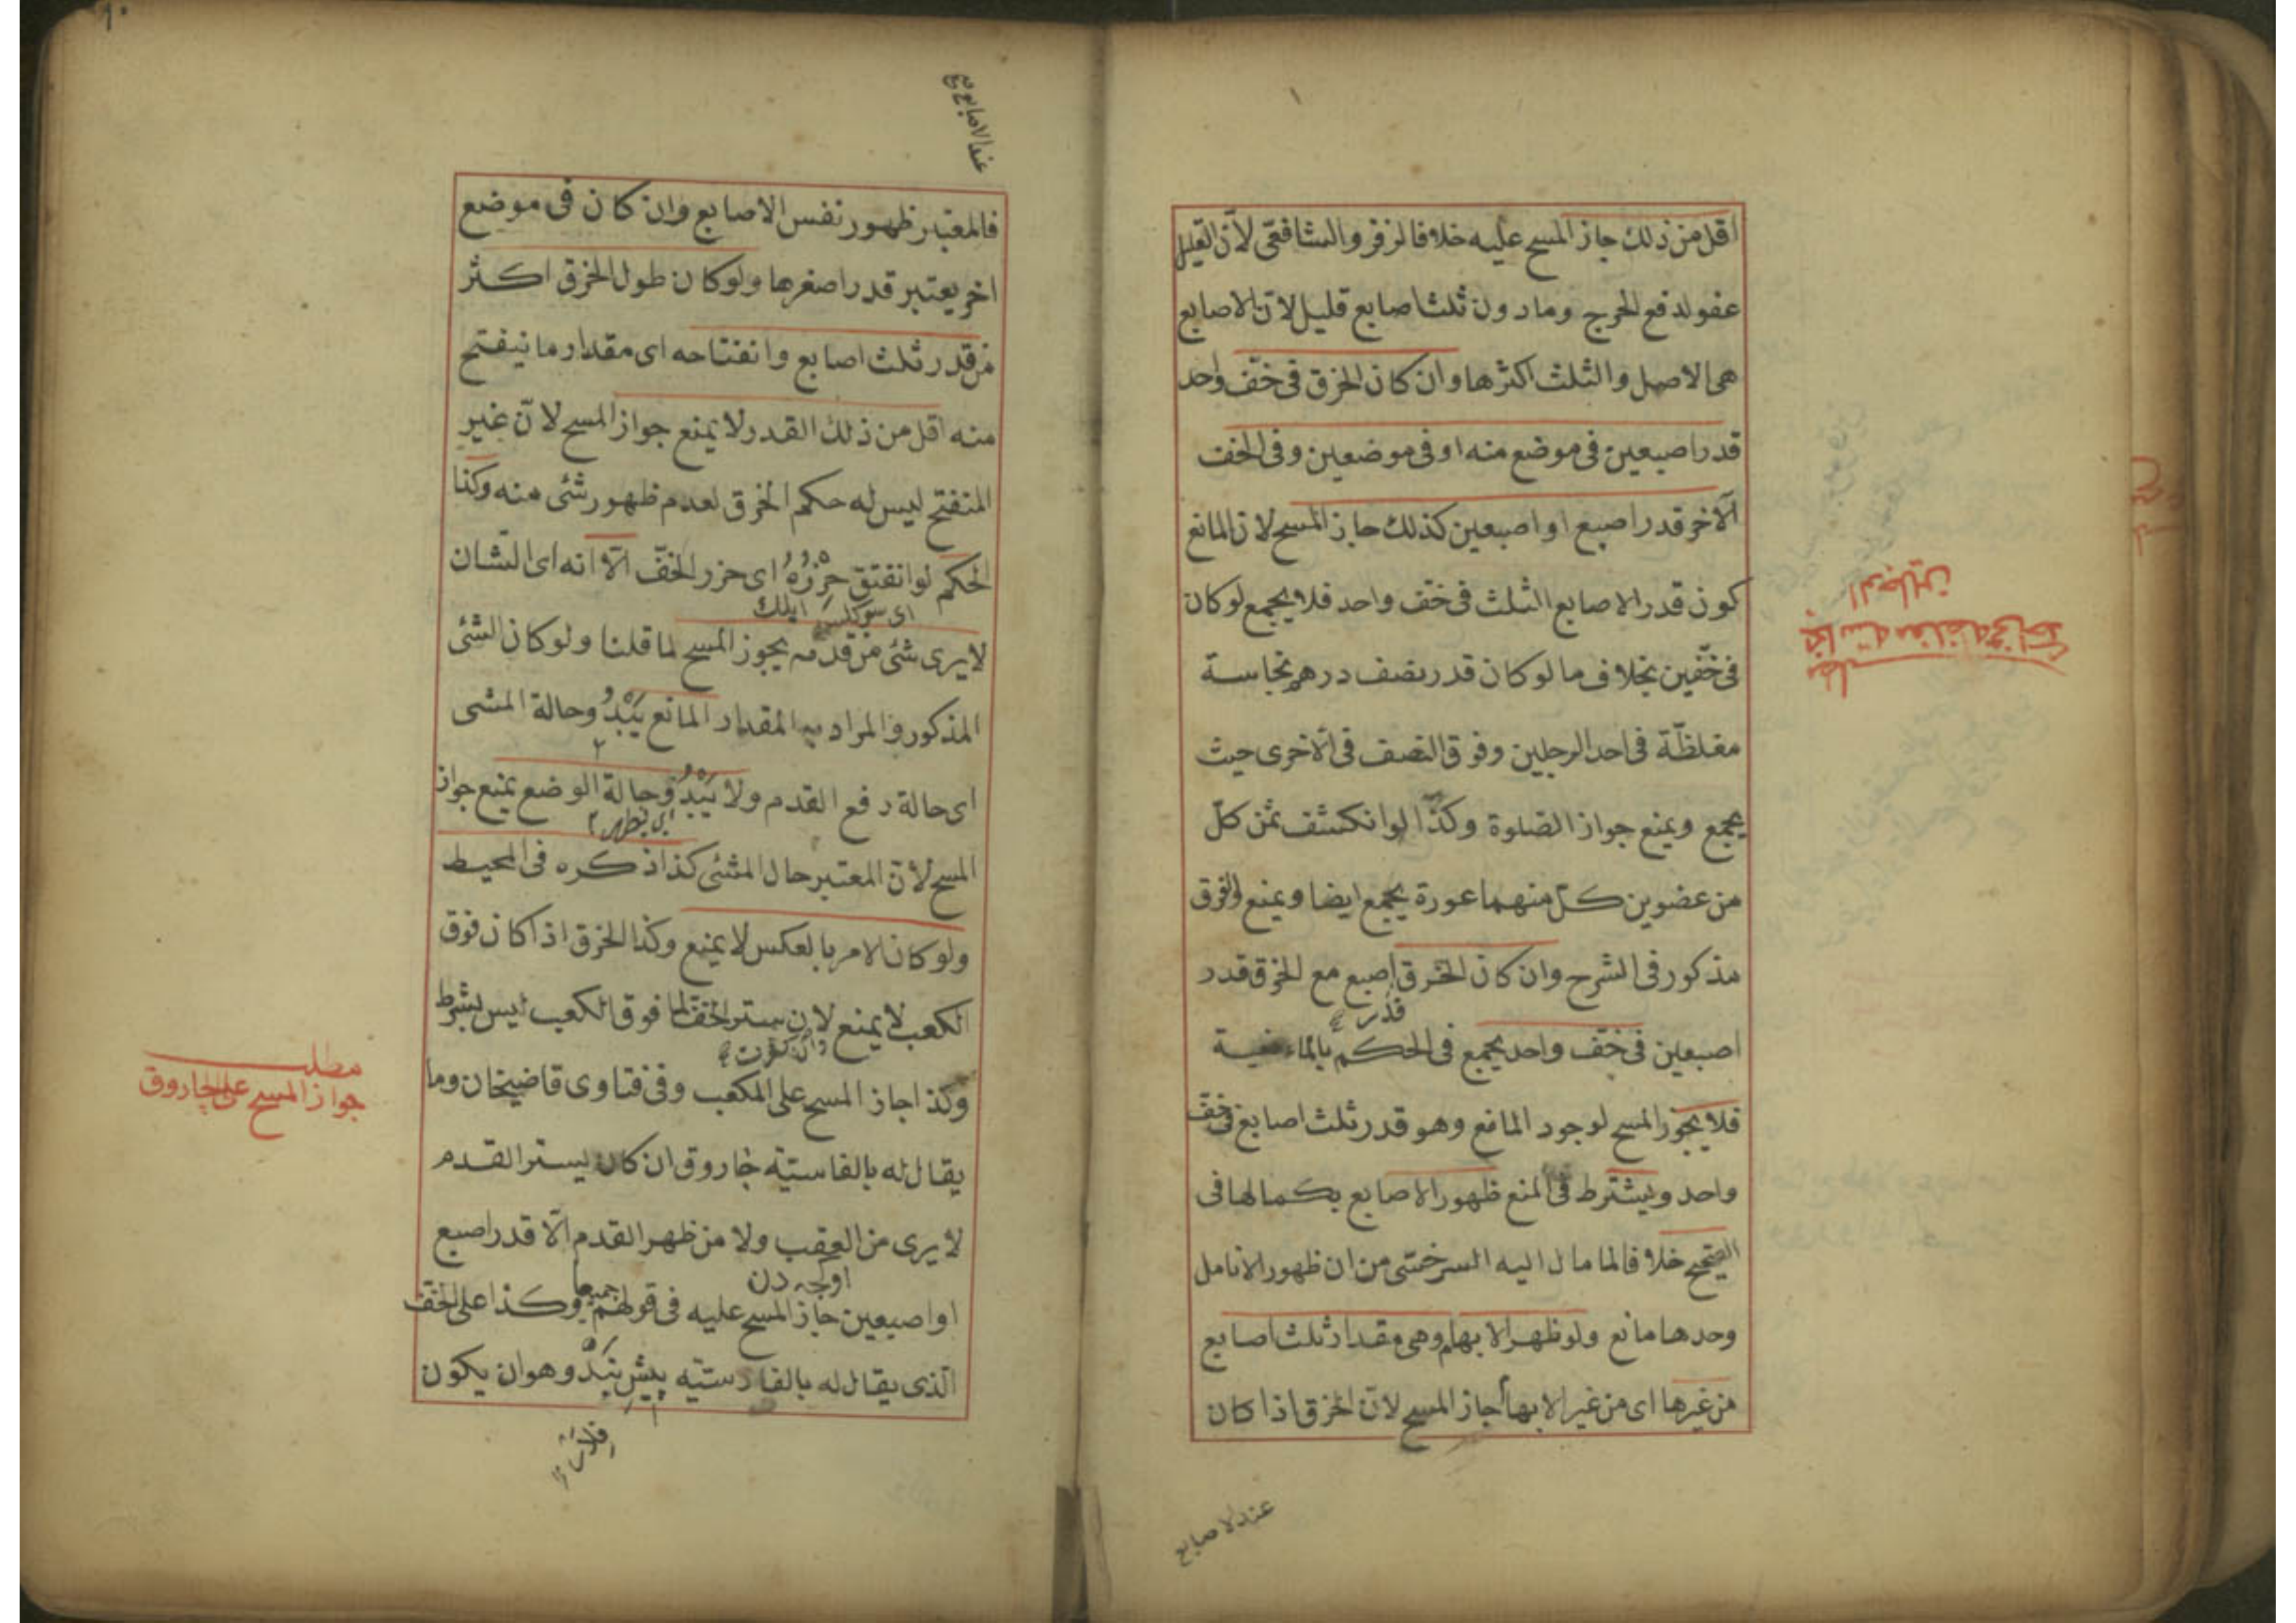 اقل من ذلك جاز المسح عليه خلافا لزفر والشافعى لان القليل
عفو لدفع الحرج وما دون ثلث اصابع قليل لان الاصابع
هى الاصل والثلث اكثرها وان كان الخرق فى خف واحد
قدر اصبعين فى موضع منه او فى موضعين وفى الخف
الآخر قدر اصبع او اصبعين كذلك جاز المسح لان المانع
كون قدر الاصابع الثلث فى خف واحد فلا يجمع لو كان
فى خفين بخلاف ما لو كان قدر نصف درهم نجاسة
مغلظة فى احد الرجلين وفوق النصف فى الاخرى حيث
يجمع ويمنع جواز الصلوة وكذا لو انكشف ثمن كل
من عضوين كل منهما عورة يجمع ايضا ويمنع والفرق
مذكور فى الشرح وان كان الخرق اصبع مع الخرق قدر
قدر
اصبعين فى خف واحد يجمع فى الحكم
فلا يجوز المسح لوجود المانع وهو قدر ثلث اصابع فى خف
واحد ويشترط فى المنع ظهور الاصابع بكمالها فى
الصحيح خلافا لما مال اليه السرخسى من ان ظهور الانامل
وحدها مانع ولو ظهر الابهام وهى مقدار ثلث اصابع
من غيرها اى من غير الابهام جاز المسح لان الخرق اذا كان
عند الاصابع
الرجلين
مطلب
عند الاصابع
فالمعتبر ظهور نفس الاصابع وان كان فى موضع
اخر يعتبر قدر اصغرها ولو كان طول الخرق اكثر
من قدر ثلث اصابع وانفتاحه اى مقدار ما ينفتح
منه اقل من ذلك القدر لا يمنع جواز المسح لان غير
المنفتح ليس له حكم الخرق لعدم ظهور شئ منه وكذا
الحكم لو انفتق خرزه اى خرز الخف الا انه اى الشان
لا يرى شئ من قدمه يجوز المسح لما قلنا ولو كان الشئ
المذكور والمراد به المقدار المانع يبدو حالة المشى
اى حالة رفع القدم ولا يبدو حالة الوضع يمنع جواز
اى يظهر
المسح لان المعتبر حال المشى كذا ذكره فى المحيط
ولو كان الامر بالعكس لا يمنع وكذا الخرق اذا كان فوق
الكعب لا يمنع لان ستر الخف لما فوق الكعب ليس بشرط
وكذا جاز المسح على المكعب وفى فتاوى قاضيخان وما
يقال له بالفارسية جاروق ان كان يستر القدم
لا يرى من العقب ولا من ظهر القدم الا قدر اصبع
او اصبعين جاز المسح عليه فى قولهم جميعا وكذا على الخف
الذى يقال له بالفارسية پيش بند وهو ان يكون
مطلب
جواز المسح على الجاروق